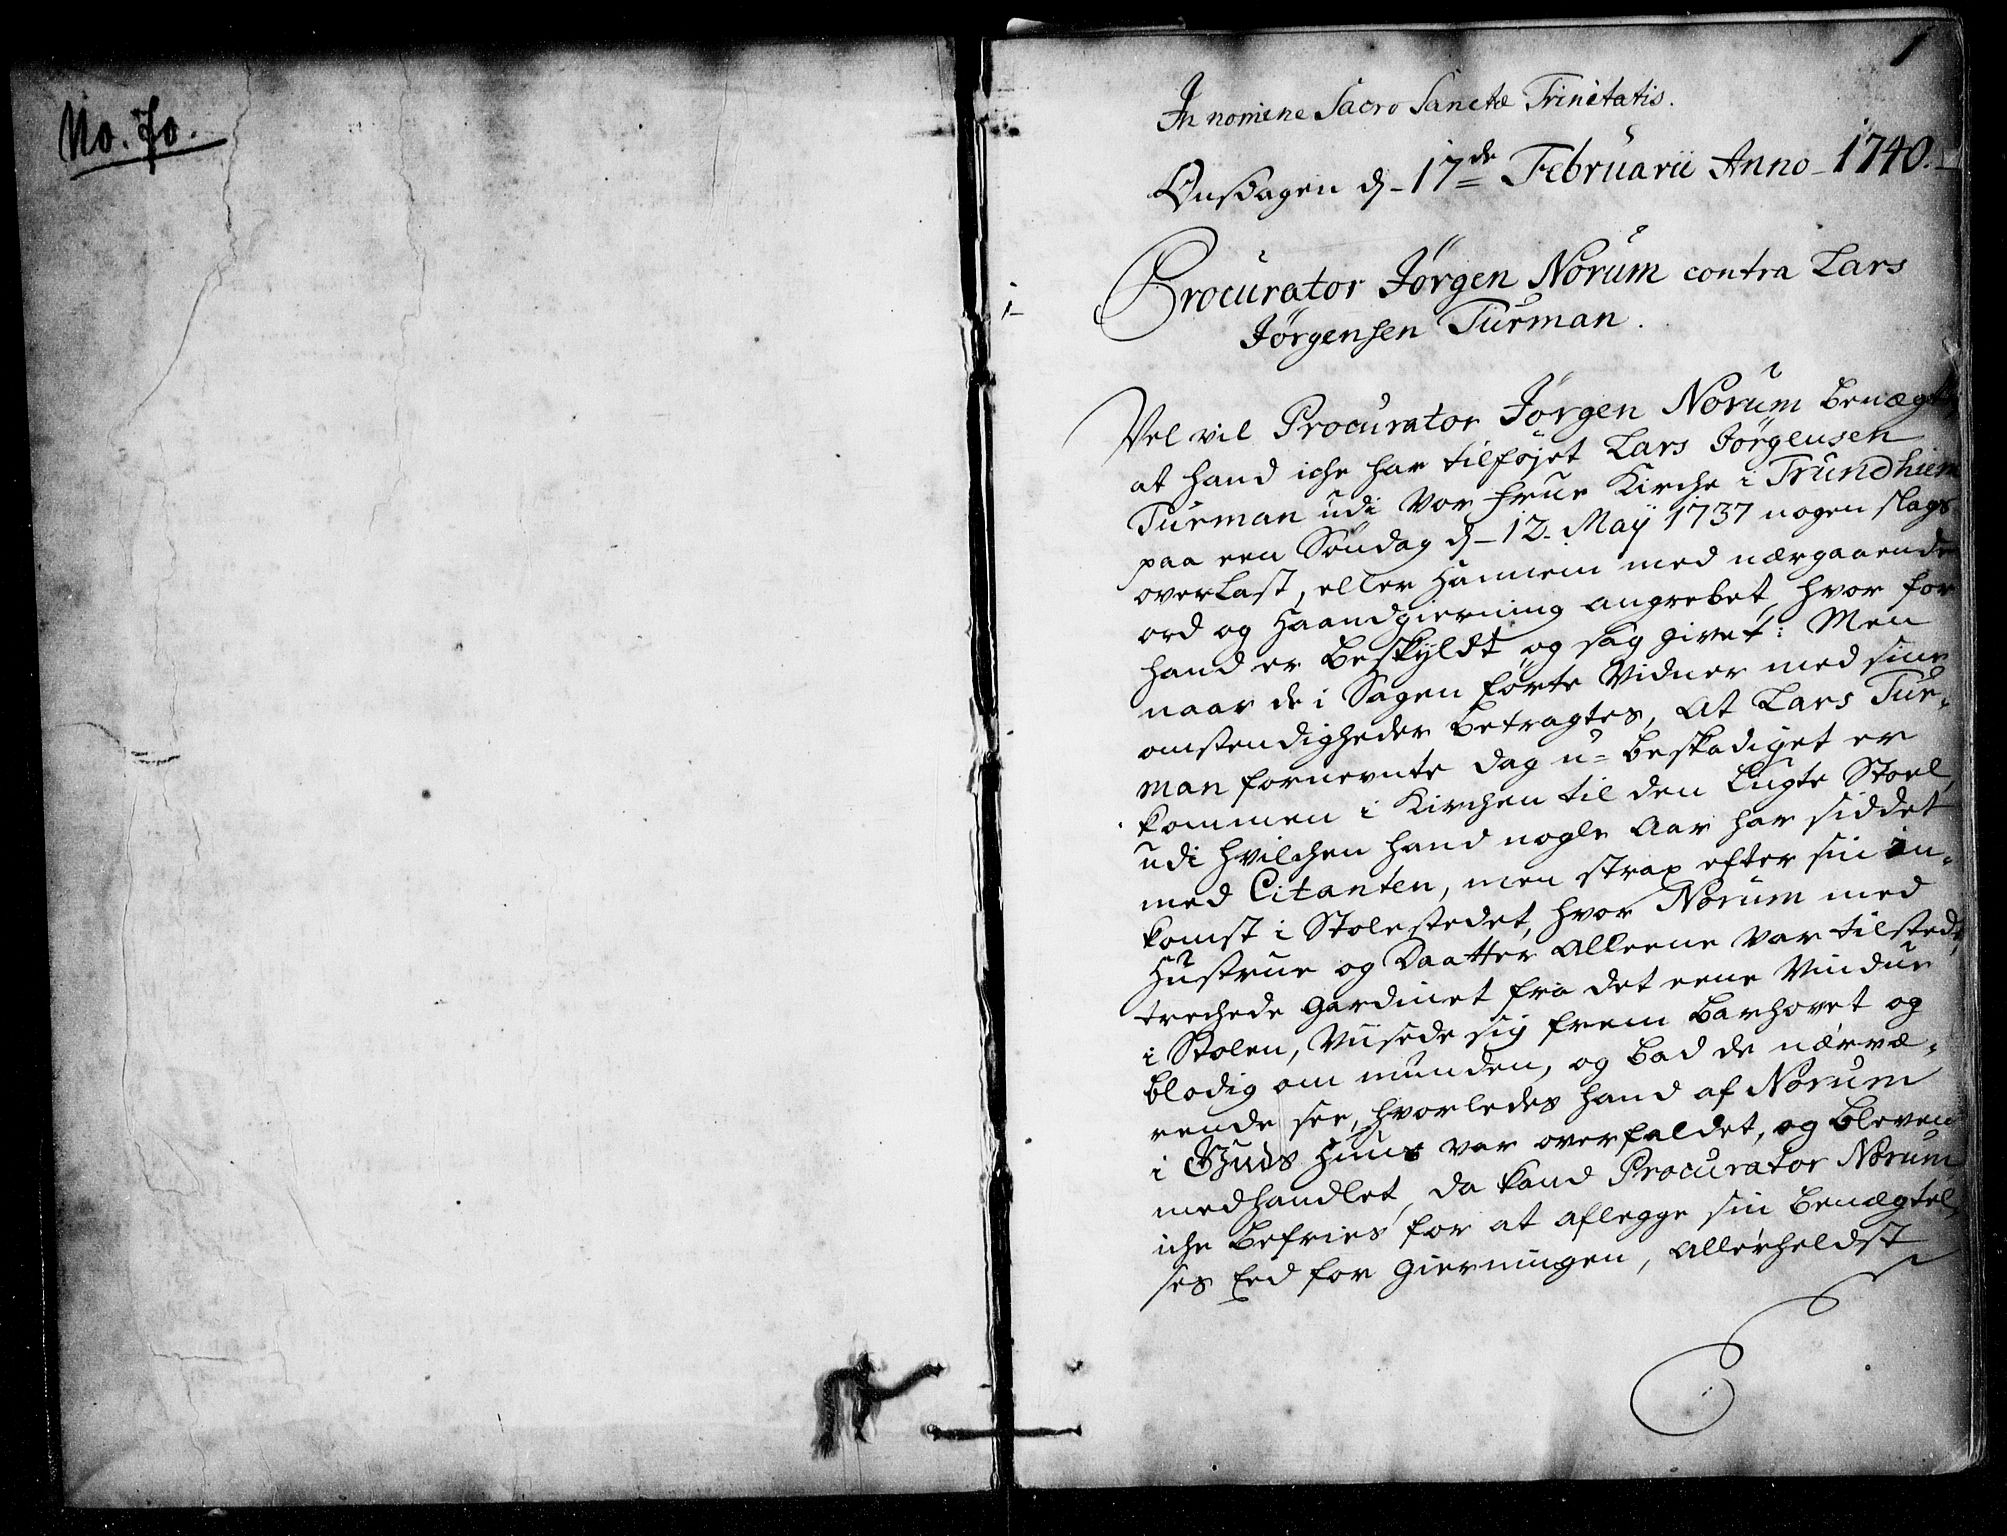 No. 70.
1
In nomine Sacro Sanctæ Trinitatis.
Onsdagen d. 17de Februarii Anno 1740.
1
Procurator Jørgen Norum contra Lars
Jørgensen Turman.
Vel vil Procurator Jørgen Norum benægte,
at hand iche har tilføjet Lars Jørgensen
Turman udi Vor Frue Kirche i Trundhiem
paa een Søndag d. 12. Maij 1737 nogen slags
overLast, eller Hannem med nærgaaende
ord og Haandgierning angrebet, hvor for
hand er beskyldt og sag givet: Men
naar de i Sagen førte Vidner med sine
omstendigheder betragtes, at Lars Tur-
man fornevnte dag u-beskadiget er
kommen i Kirchen til den lugte Stoel,
udi hvilchen hand nogle Aar har siddet
med Citanten, men strax efter sin in-
komst i Stolestedet, hvor Norum med
Hustrue og Daatter alleene var tilstede,
trechede gardinet fra det eene Vindue
i Stolen, Viisede sig frem barhovet og
blodig om munden, og bad de nærvæ-
rende see, hvorledes hand af Norum
i Guds Huus var overfaldet, og bleven
medhandlet, da kand Procurator Norum
iche befries for at aflegge sin benægtel
ses Eed for gierningen, allerheldst